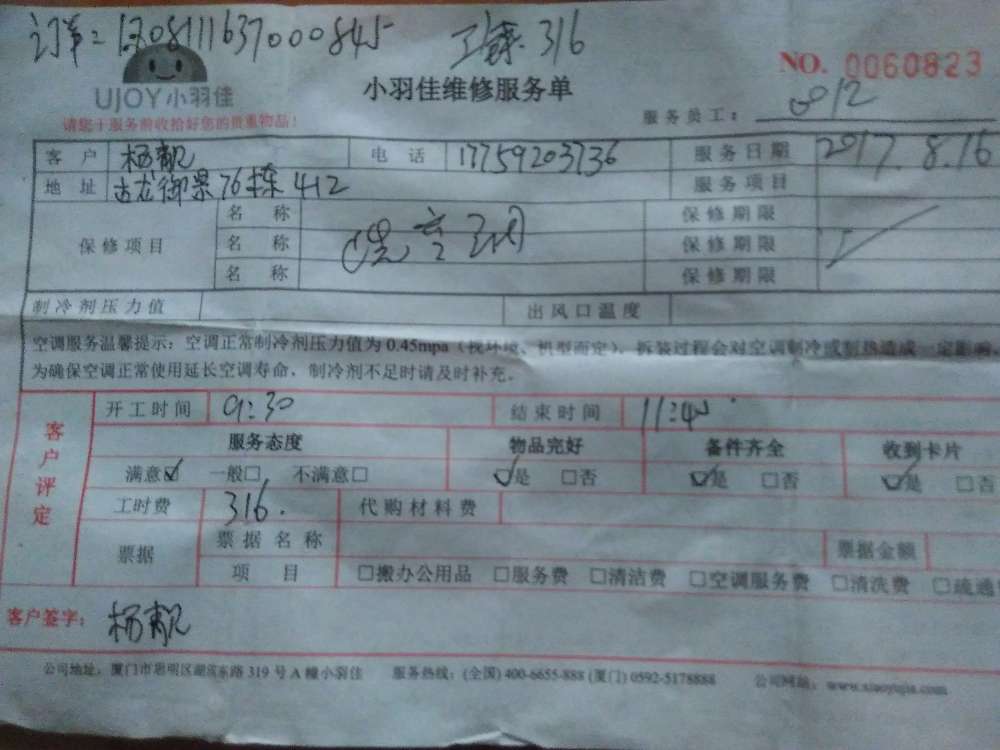 订单:170811637000845 工钱 316
UJOY小羽佳
小羽佳维修服务单
NO. 0060823
请您于服务前收拾好您的贵重物品!
服务员工: 0012
客户 杨靓 电话 17759203736 服务日期 2017.8.16
地址 古龙御景76栋412 服务项目
保修项目 名称 保修期限
名称 洗空调 保修期限
名称 保修期限
制冷剂压力值 出风口温度
空调服务温馨提示:空调正常制冷剂压力值为0.45mpa(视环境、机型而定),拆装过程会对空调制冷或制热造成一定影响,
为确保空调正常使用延长空调寿命,制冷剂不足时请及时补充。
客户评定
开工时间 9:30 结束时间 11:40
服务态度 物品完好 备件齐全 收到卡片
满意☑ 一般□ 不满意□ ☑是 □否 ☑是 □否 ☑是 □否
工时费 316. 代购材料费
票据 票据名称 票据金额
项目 □搬办公用品 □服务费 □清洁费 □空调服务费 □清洗费 □疏通
客户签字: 杨靓
公司地址:厦门市思明区湖滨东路319号A幢小羽佳 服务热线:(全国)400-6655-888 (厦门)0592-5178888 公司网站:www.xiaoyujia.com